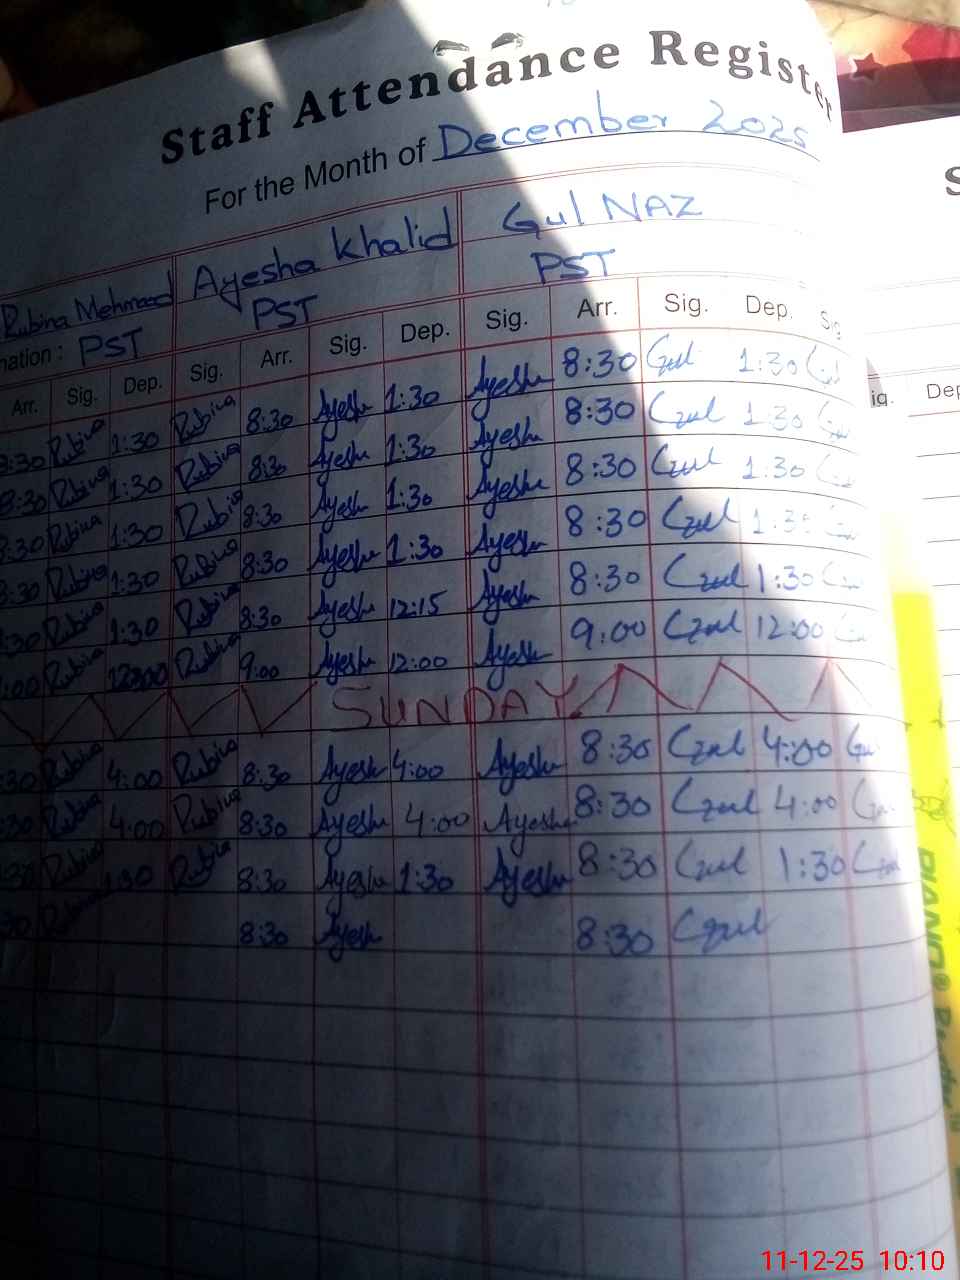 Staff Attendance Register
For the Month of December 2025
Rubina Mehmood Ayesha Khalid Gul NAZ
nation : PST PST PST
Arr. Sig. Dep. Sig. Arr. Sig. Dep. Sig. Arr. Sig. Dep. Sig
8:30 Rubina 1:30 Rubina 8:30 Ayesha 1:30 Ayesha 8:30 Gul 1:30 Gul
8:30 Rubina 1:30 Rubina 8:30 Ayesha 1:30 Ayesha 8:30 Gul 1:30
8:30 Rubina 1:30 Rubina 8:30 Ayesha 1:30 Ayesha 8:30 Gul 1:30
8:30 Rubina 1:30 Rubina 8:30 Ayesha 1:30 Ayesha 8:30 Gul 1:30
:30 Rubina 1:30 Rubina 8:30 Ayesha 12:15 Ayesha 8:30 Gul 1:30
:00 Rubina 12:00 Rubina 9:00 Ayesha 12:00 Ayesha 9:00 Gul 12:00
SUNDAY
:30 Rubina 4:00 Rubina 8:30 Ayesha 4:00 Ayesha 8:30 Gul 4:00 Gu
:30 Rubina 4:00 Rubina 8:30 Ayesha 4:00 Ayesha 8:30 Gul 4:00
:30 Rubina 1:30 Rubina 8:30 Ayesha 1:30 Ayesha 8:30 Gul 1:30 Gul
:30 Rubina 8:30 Ayesha 8:30 Gul
S
ig. Dep
PIANO®
11-12-25 10:10